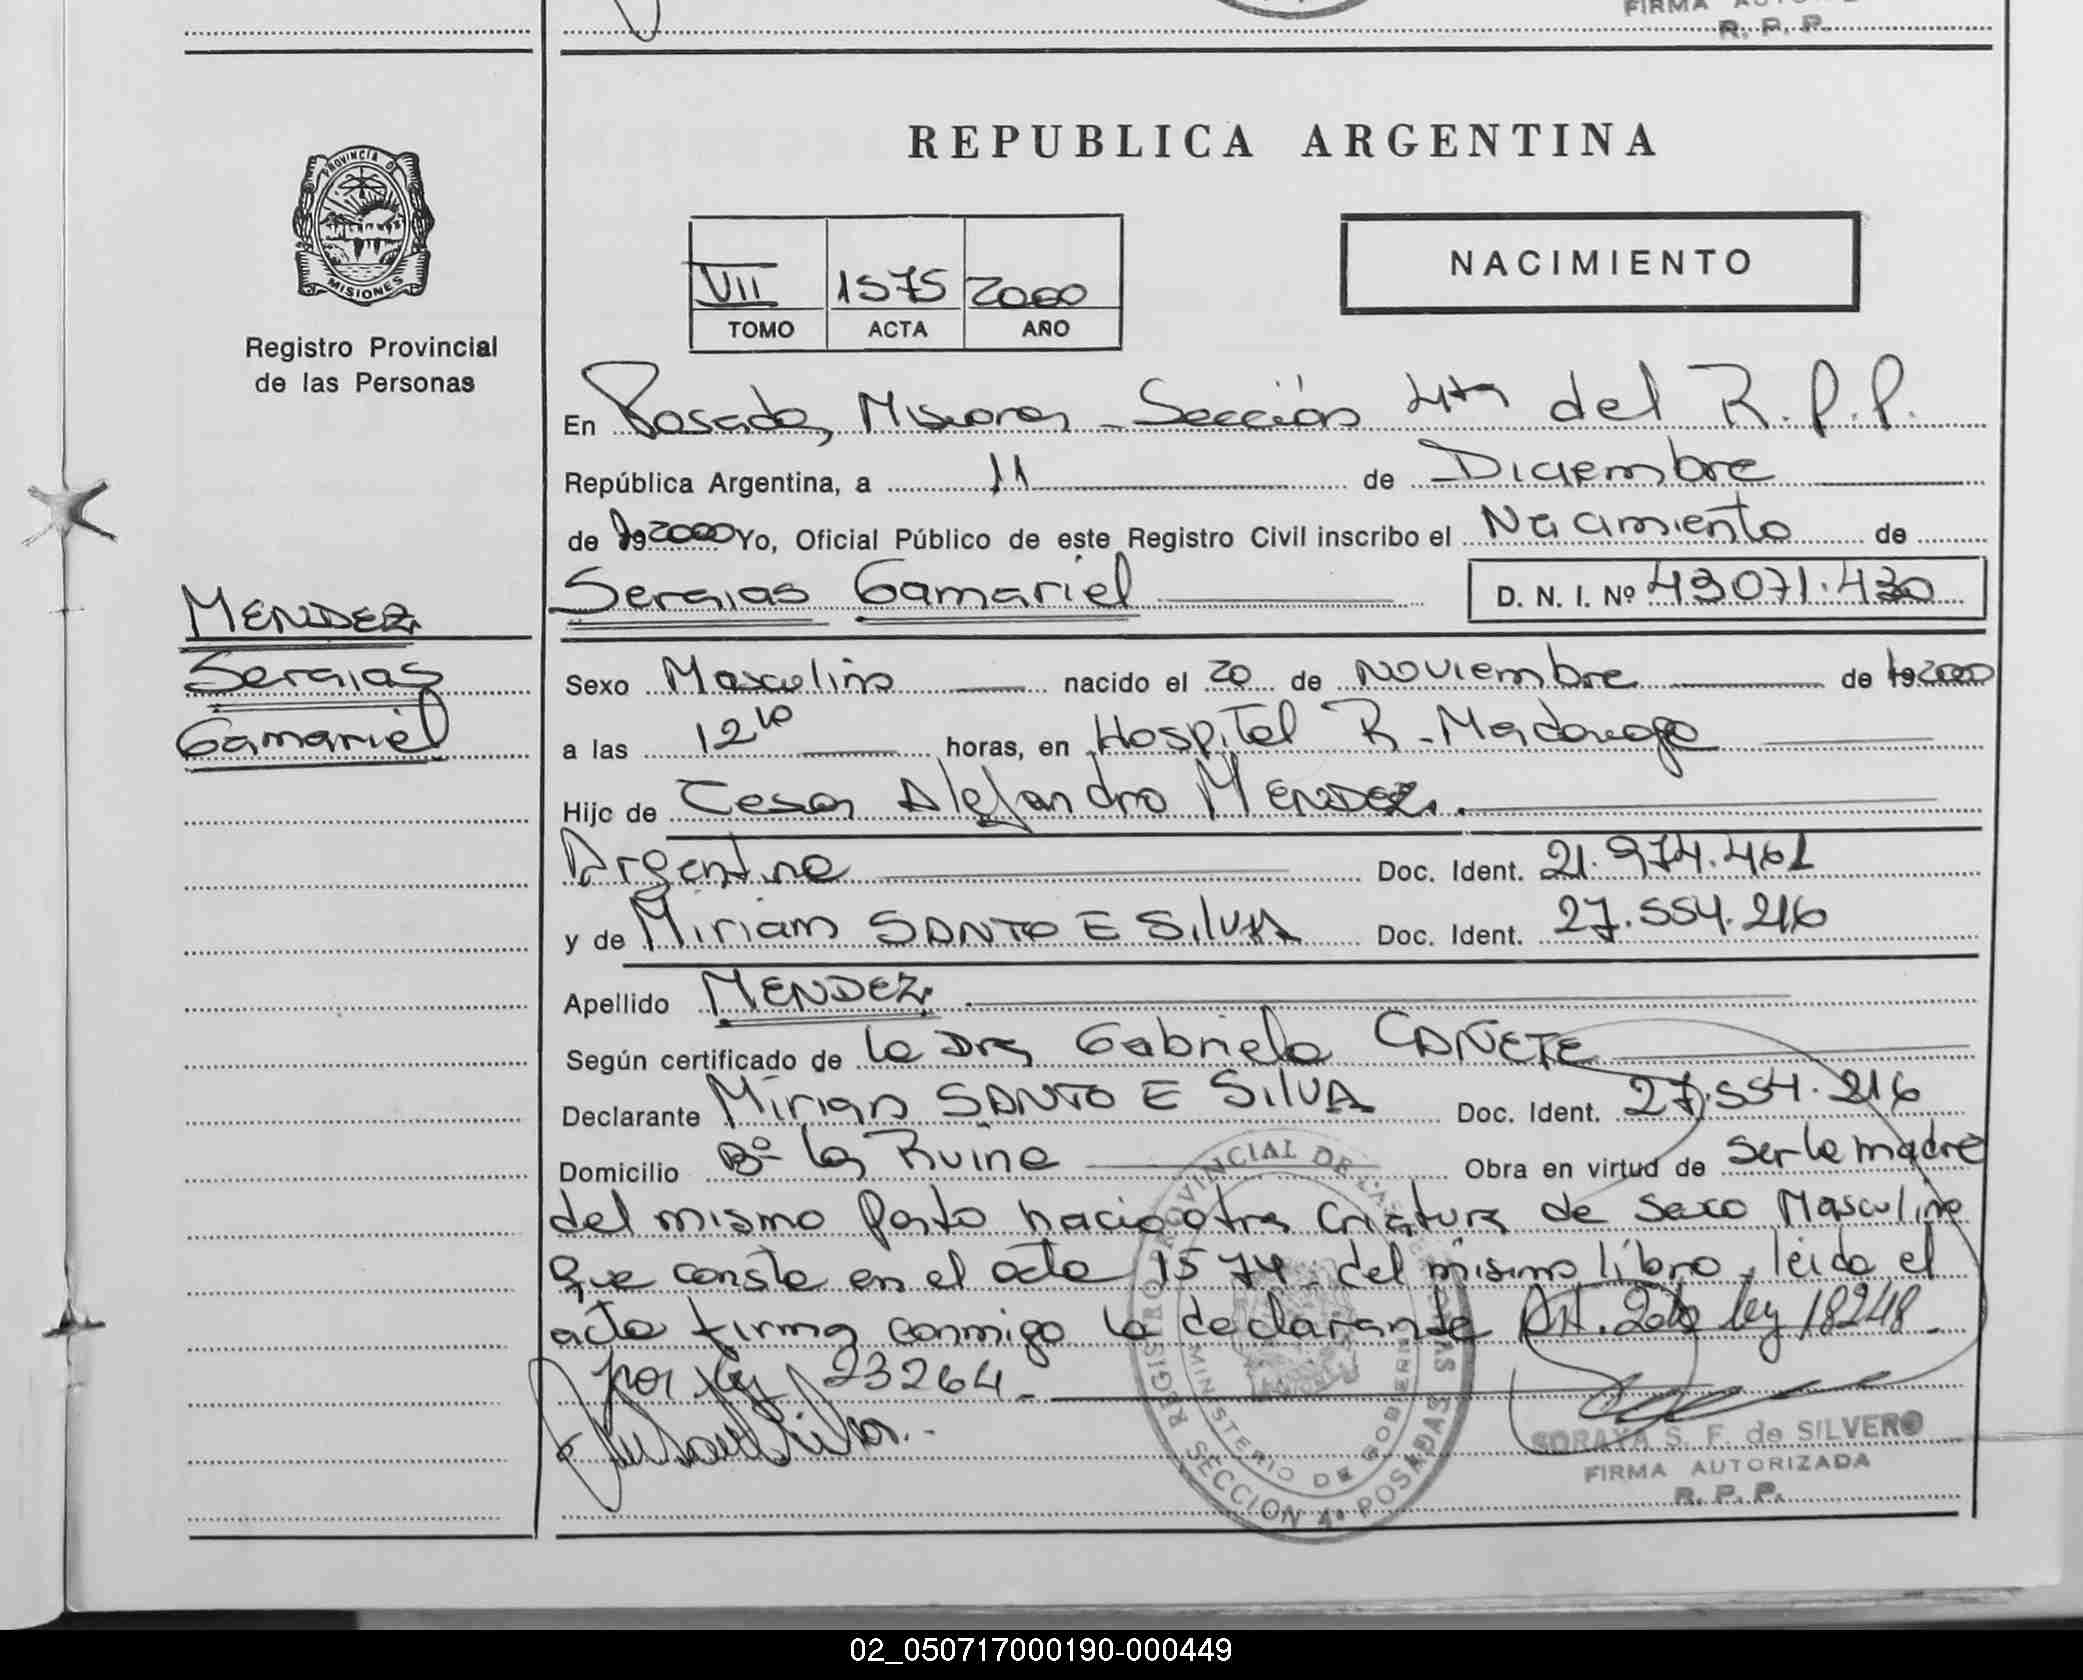 FIRMA AUTO
R. P. P.
PROVINCIA DE
MISIONES
Registro Provincial
de las Personas
REPUBLICA ARGENTINA
NACIMIENTO
VII 1575 2000
TOMO ACTA AÑO
En Posadas, Misiones - Sección 4ta del R.P.P.
República Argentina, a 11 de Diciembre
de 19 2000 Yo, Oficial Público de este Registro Civil inscribo el Nacimiento de
Seraias Gamariel D. N. I. Nº 43071.430
MENDEZ
Seraias
Gamariel
Sexo Masculino nacido el 20 de Noviembre de 19 2000
a las 12 10 horas, en Hospital R. Madariaga
Hijo de Cesar Alejandro MENDEZ.
Argentino Doc. Ident. 21.974.461
y de Miriam SANTO E SILVA Doc. Ident. 27.554.216
Apellido MENDEZ
Según certificado de la Dra Gabriela CAÑETE
Declarante Mirian SANTO E SILVA Doc. Ident. 27.554.216
Domicilio Bº Las Ruina Obra en virtud de ser la madre
del mismo parto nacio otra criatura de sexo Masculino
que consta en el acta 1574 del mismo libro, leida el
acta firma conmigo la declarante Art. 2do ley 18248.
por ley 23264.
REGISTRO PROVINCIAL DE LAS PERSONAS
MINISTERIO DE GOBIERNO
SECCION 4ª POSADAS
SORAYA S. F. de SILVERO
FIRMA AUTORIZADA
R. P. P.
02_050717000190-000449